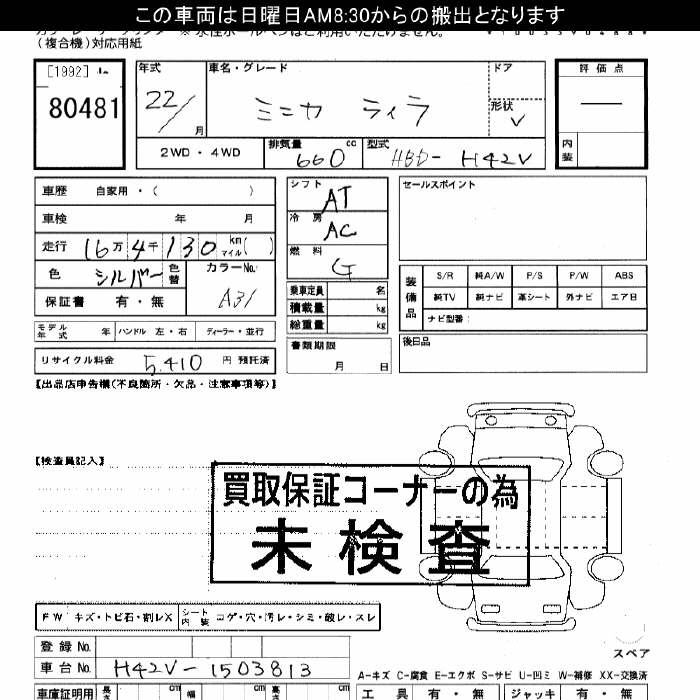 この車両は日曜日AM8:30からの搬出となります
(複合機)対応用紙
[1992]
80481
年式 車名・グレード ドア 評価点
22/ 月 ミニカ ライラ 形状 V
内装
2WD・4WD 排気量 660 cc 型式 HBD-H42V
車歴 自家用・( ) シフト AT セールスポイント
車検 年 月 冷房 AC
走行 16万4千130 km マイル( ) 燃料 G
色 シルバー 色替 カラーNo. A31
保証書 有・無
乗車定員 名
積載量 kg
総重量 kg
装備品 S/R 純A/W P/S P/W ABS
純TV 純ナビ 革シート 外ナビ エア日
ナビ型番:
モデル年式 年 ハンドル 左・右 ディーラー・並行
書類期限 月 日
後日品
リサイクル料金 5,410 円 預託済
【出品店申告欄(不良箇所・欠品・注意事項等)】
【検査員記入】
買取保証コーナーの為
未検査
FW キズ・トビ石・割レX シート内装 コゲ・穴・汚レ・シミ・破レ・スレ
登録No.
車台No. H42V-1503813
スペア
A-キズ C-腐食 E-エクボ S-サビ U-凹ミ W-補修 XX-交換済
車庫証明用 長さ cm 幅 cm 高さ cm 工具 有・無 ジャッキ 有・無